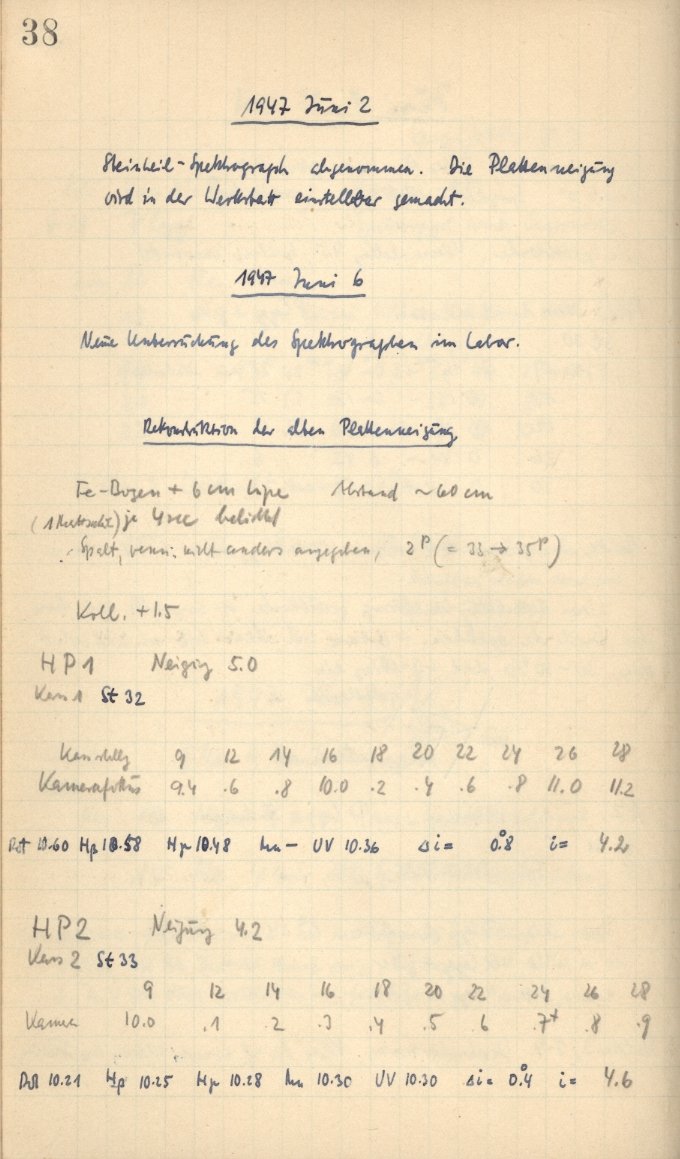 38
1947 Juni 2
Steinheil-Spektrograph abgenommen. Die Plattenneigung
wird in der Werkstatt einstellbar gemacht.
1947 Juni 6
Neue Untersuchung des Spektrographen im Labor.
Rekonstruktion der alten Plattenneigung
Fe-Bogen + 6 cm Lupe Abstand ~60 cm
je 4 sec belichtet
Spalt, wenn nicht anders angegeben, 2ᵖ (= 33 → 35ᵖ)
Koll. +1.5
HP1 Neigung 5.0
Kass 1 St 32
9 12 14 16 18 20 22 24 26 28
Kamerafokus 9.4 .6 .8 10.0 .2 .4 .6 .8 11.0 11.2
Rot 10.60 Hβ 10.58 Hγ 10.48 — UV 10.36 Δi = 0°.8 i = 4.2
HP2 Neigung 4.2
Kass 2 St 33
9 12 14 16 18 20 22 24 26 28
Kamera 10.0 .1 .2 .3 .4 .5 .6 .7⁺ .8 .9
Rot 10.21 Hβ 10.25 Hγ 10.28 10.30 UV 10.30 Δi = 0°.4 i = 4.6